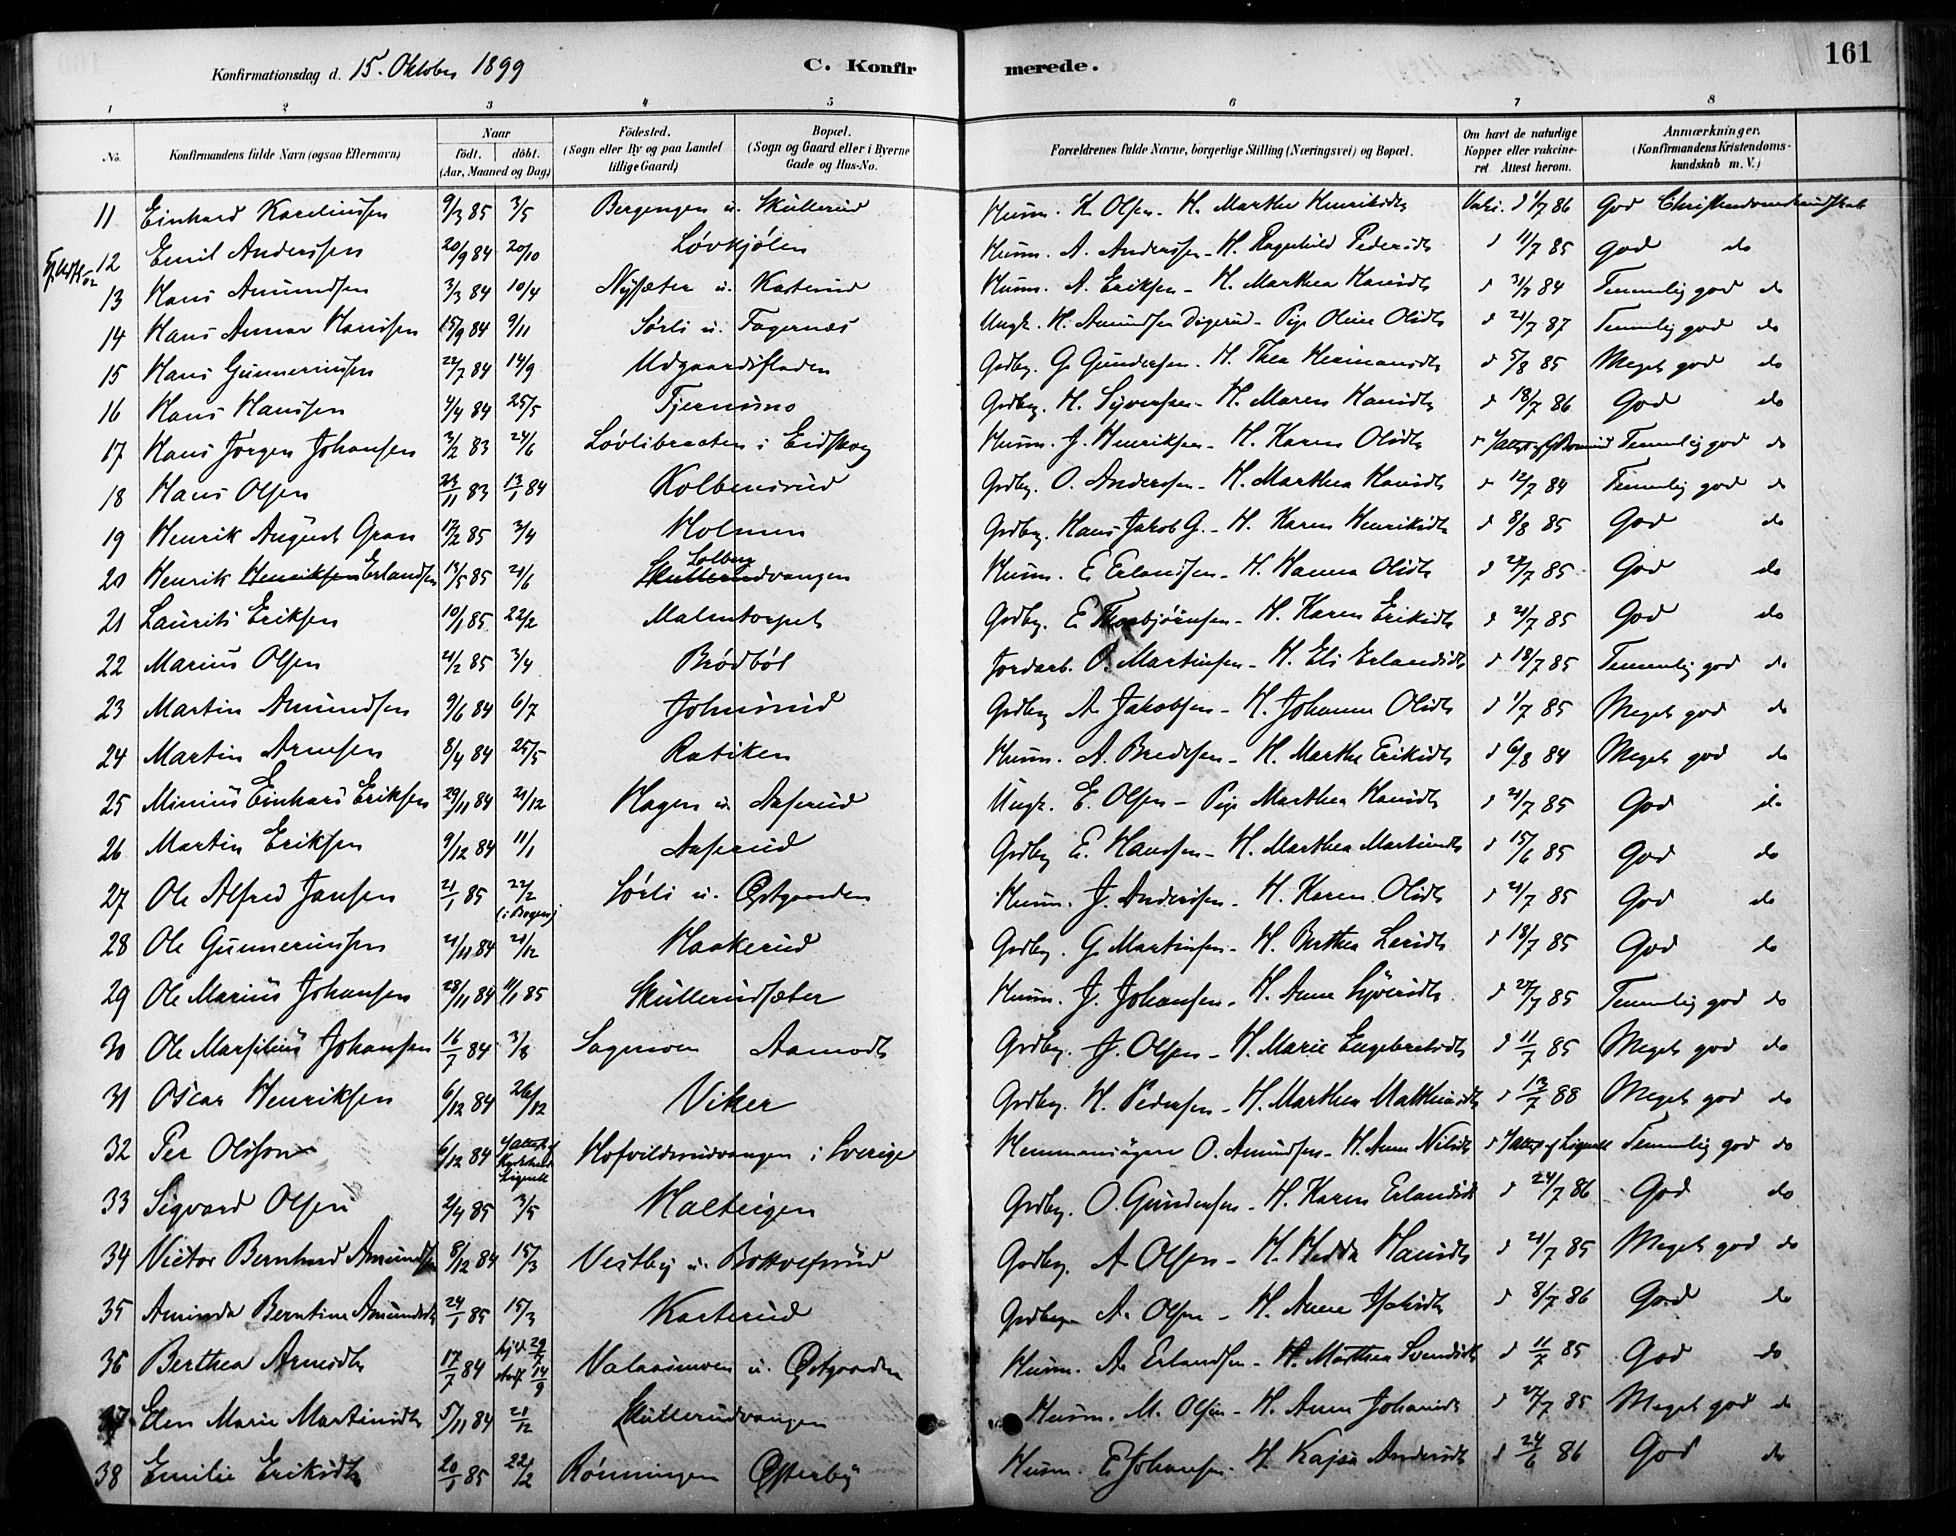 Konfirmationsdag d. 15. Oktober 1899 C. Konfirmerede. 161
1 2 3 4 5 6 7 8
No. Konfirmandens fulde Navn (ogsaa Efternavn) Naar födt. döbt. (Aar, Maaned og Dag) Födested. (Sogn eller By og paa Landet tillige Gaard) Bopæl. (Sogn og Gaard eller i Byerne Gade og Hus-No. Forældrenes fulde Navne, borgerlige Stilling (Næringsvei) og Bopæl. Om havt de naturlige Kopper eller vakcineret Attest herom. Anmærkninger. (Konfirmandens Kristendomskundskab m. V.)
11 Einhard Kareliussen 9/3 85 3/5 Bergengen u. Skullerud Husm. K. Olsen - H. Marthe Henriksdtr Vaksi. d 1/7 86 God Christendomskundskab
12 Emil Anderssen 20/9 84 20/10 Lövkjölen Husm. A. Anderssen - H. Ragnhild Pedersdtr d 11/7 85 God do
13 Hans Amundsen 3/3 84 10/4 Nysæter u. Kasterud Husm. A. Eriksen - H. Marthea Hansdtr d 31/7 84 Temmelig god do
14 Hans Annar Hanssen 15/9 84 9/11 Sörli u. Fagernæs Ungk. H. Amundsen Digerud - Pige Oline Olsdtr d 21/7 87 Temmelig god do
15 Hans Gunneriussen 22/7 84 14/9 Udgaardsfladen Grdbg. G. Gundersen - H. Thea Hermansdtr d 5/8 85 Meget god do
16 Hans Hanssen 4/4 84 25/5 Tjernsmo Grdbg. H. Syversen - H. Maren Hansdtr d 18/7 86 God do
17 Hans Jörgen Johansen 3/2 83 24/6 Lövlibraaten i Eidskog Husm. J. Henriksen - H. Karen Olsdtr Temmelig god do
18 Hans Olsen 23/11 83 13/1 84 Kolbensrud Grdbg. O. Andersen - H. Marthea Hansdtr d 12/7 84 Temmelig god do
19 Henrik August Gran 13/2 85 3/4 Holmen Grdbg. Hans Jakob G. - H. Karen Henriksdtr d 8/8 85 God do
20 Henrik Henriksen Erlandsen 13/5 85 21/6 Solberg Skullerudvangen Husm. E. Erlandsen - H. Hanna Olsdtr d 24/7 85 God do
21 Laurits Eriksen 10/1 85 22/2 Malmtorpet Grdbg. E. Thorbjörnsen - H. Karen Eriksdtr d 21/7 85 God do
22 Marius Olsen 21/2 85 3/4 Brödböl Jordarb. O. Martinsen - H. Eli Erlandsdtr d 18/7 85 Temmelig god do
23 Martin Amundsen 9/6 84 6/7 Johnsrud Grdbg A. Jakobsen - H. Johanne Olsdtr d 1/7 85 Meget god do
24 Martin Arnesen 8/4 84 25/5 Ratiken Husm. A. Bredesen - H. Marthe Eriksdtr d 6/8 84 Meget god do
25 Minius Einhard Eriksen 29/11 84 21/12 Hagen u. Aaserud Ungk. E. Olsen - Pige Marthea Hansdtr d 21/7 85 God do
26 Martin Eriksen 9/12 84 11/1 Aaserud Grdbg E. Hanssen - H. Marthea Martinsdtr d 15/6 85 God do
27 Ole Alfred Jansen 21/1 85 22/2 (i Bogen) Sörli u. Östgaarden Husm. J. Anderssen - H. Karen Olsdtr d 21/7 85 God do
28 Ole Gunneriussen 21/11 84 21/12 Haakerud Grdbg. G. Martinsen - H. Berthea Larsdtr d 18/7 85 God do
29 Ole Marius Johansen 28/11 84 11/1 85 Skullerudsæter Husm. J. Johansen - H. Anne Syversdtr d 27/7 85 Temmelig god do
30 Ole Marselius Johansen 16/7 84 3/8 Sagmoen Aamodt Grdbg. J. Olsen - H. Marie Engebretsdtr d 11/7 85 Meget god do
31 Oscar Henriksen 6/12 84 26/12 Viker Grdbg. H. Pedersen - H. Marthea Mathiasdtr d 13/7 88 Meget god do
32 Per Olsson 6/12 84 Hofvildsrudvangen i Sverige Hemmansägare O. Amundsen - H. Anne Nilsdtr Temmelig god do
33 Sigvard Olsen 2/4 85 3/5 Malteigen Grdbg. O. Gundersen - H. Karen Erlandsdtr d 24/7 86 God do
34 Victor Bernhard Amundsen 8/12 84 15/3 Vestby u. Bottolfsrud Grdbg. A. Olsen - H. Hedda Hansdtr d 21/7 85 Meget god do
35 Aminda Berntine Amundsdtr 24/1 85 15/3 Kasterud Grdbg. A. Olsen - H. Anne Isaksdtr d 8/7 86 God do
36 Berthea Arnesdtr 17/7 84 hjd. 29/7 stadf. 14/9 Valaaimoen u. Östgaarden Husm. A. Erlandsen - H. Marthea Svendsdtr d 11/7 85 God do
37 Elen Marie Martinsdtr 5/11 84 21/12 Skullerudvangen Husm. M. Olsen - H. Anne Johansdtr d 27/7 85 Meget god do
38 Emilie Eriksdtr 20/1 85 22/2 Rönningen Österby Husm. E. Johansen - H. Kajsa Andersdtr d 24/6 86 God do